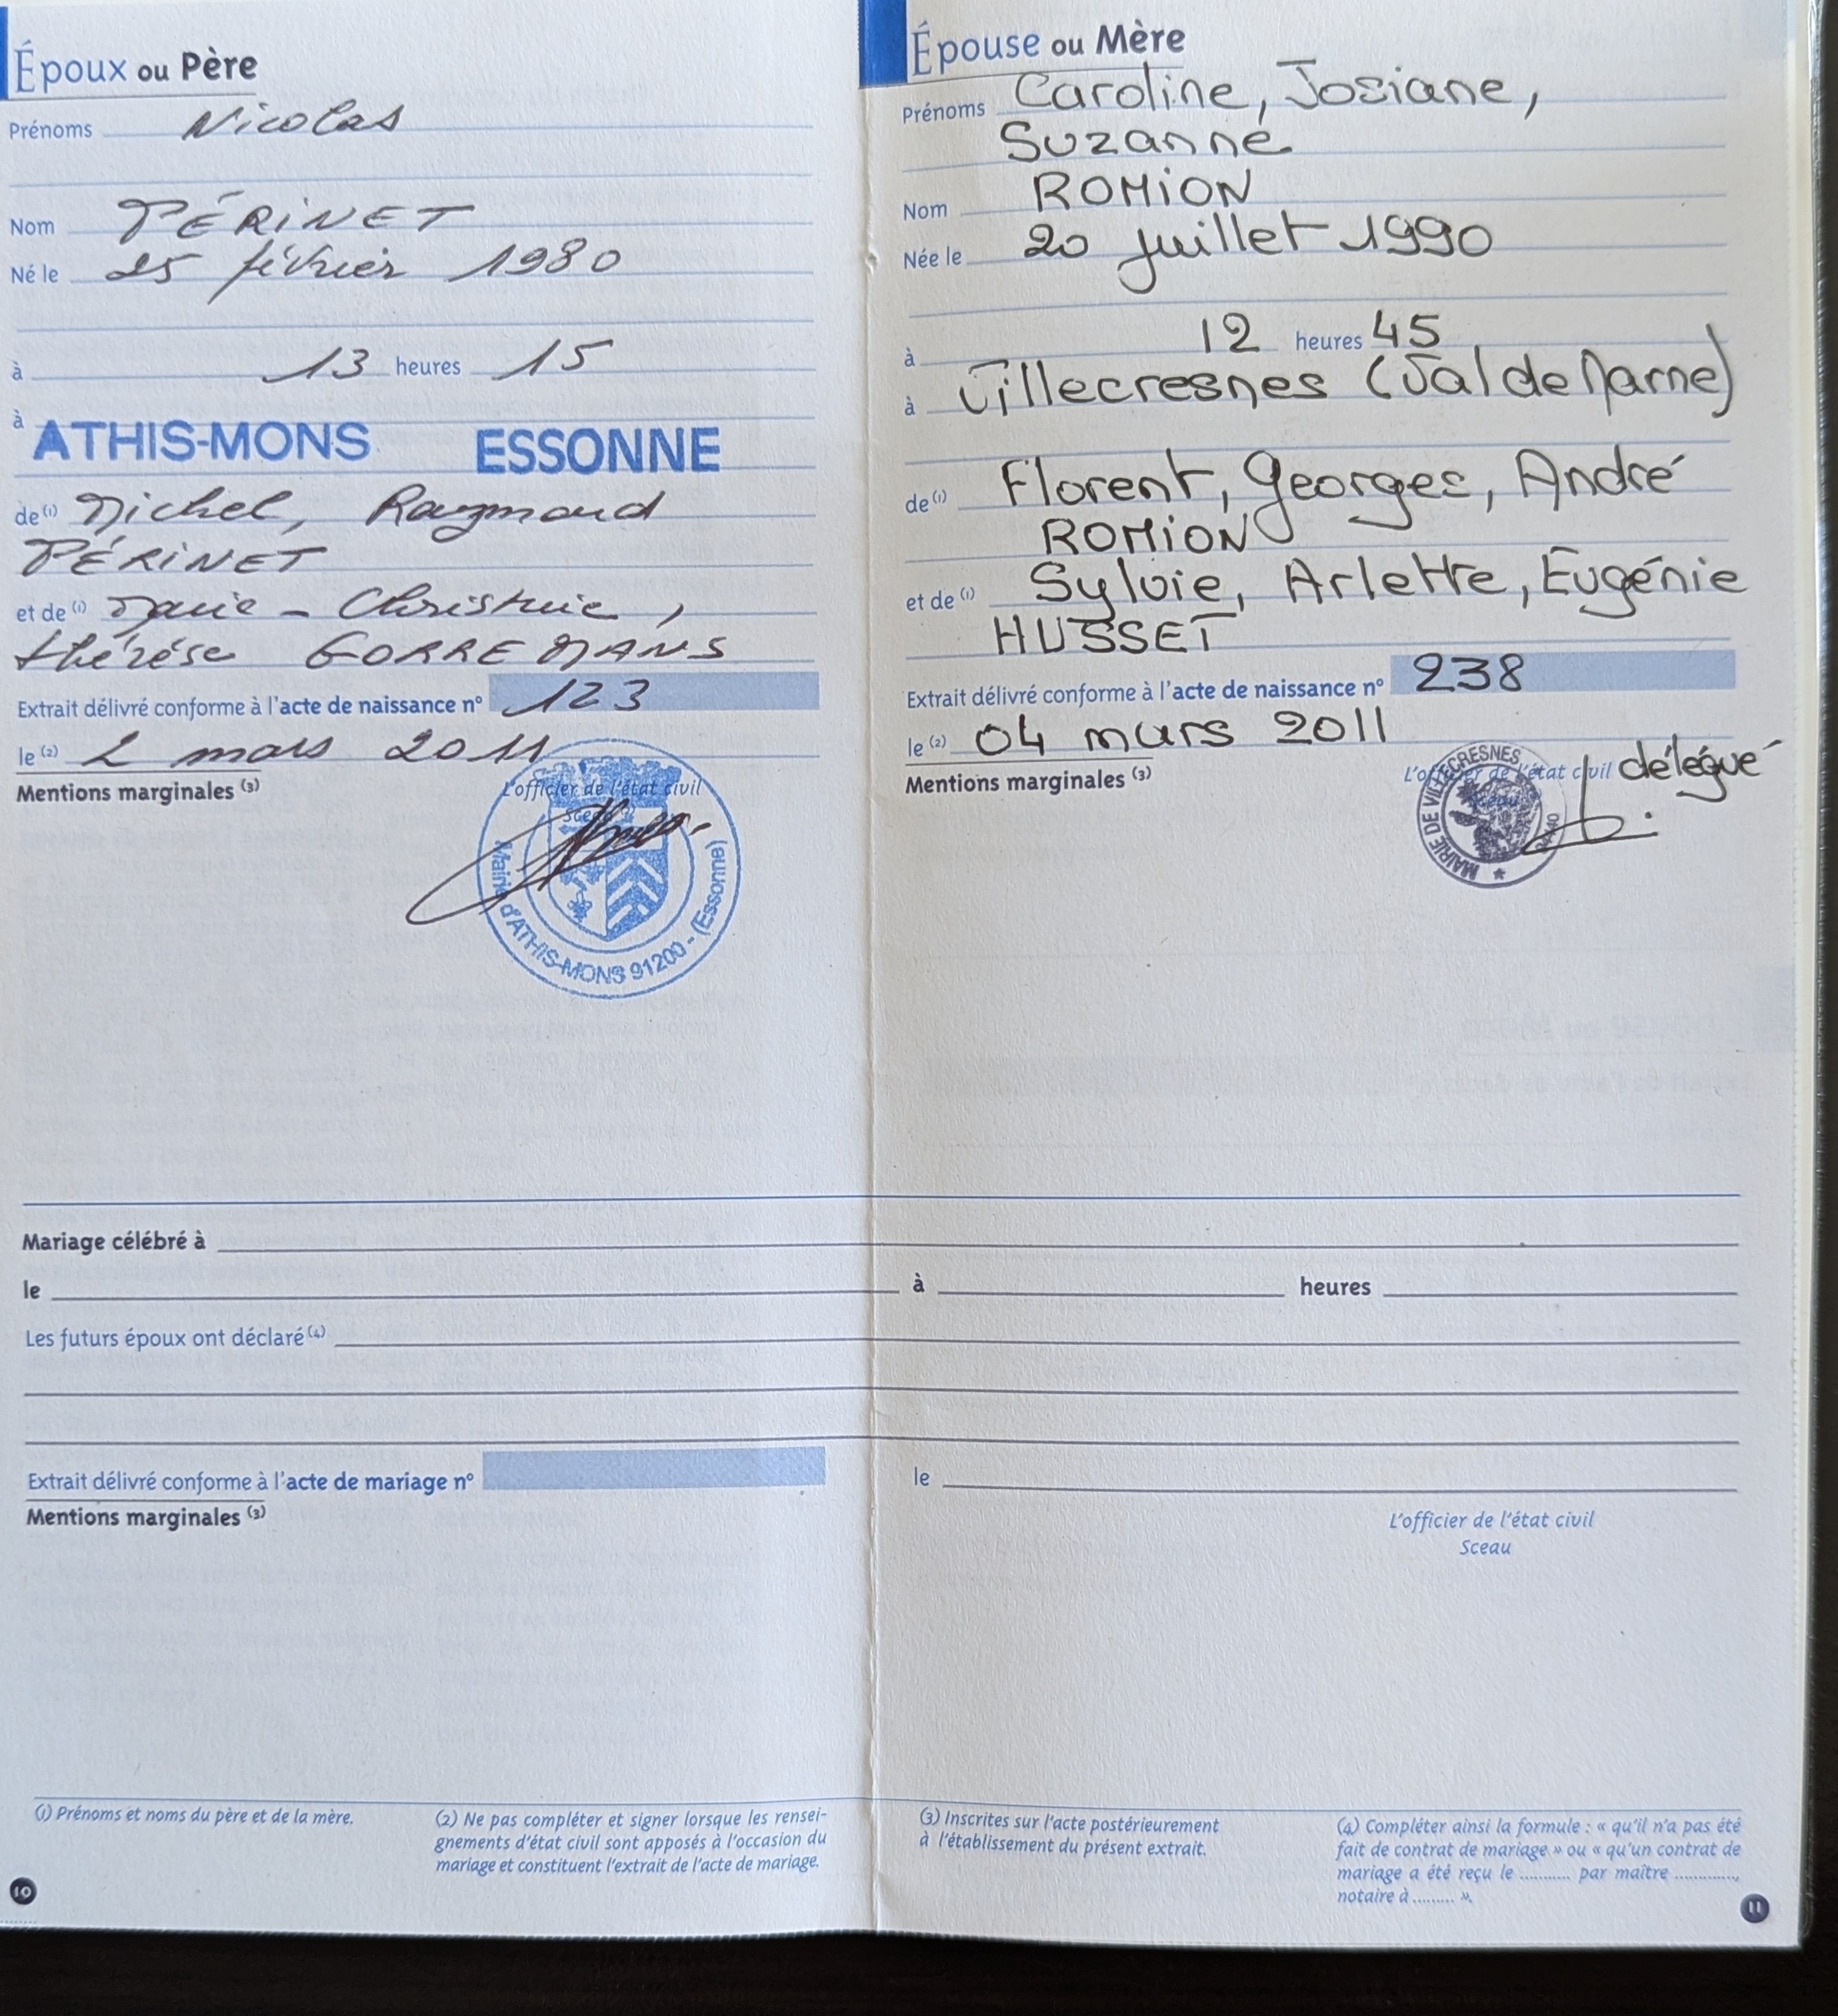 Époux ou Père
Prénoms Nicolas
Nom PÉRINET
Né le 25 février 1980
à 13 heures 15
à
ATHIS-MONS ESSONNE
de (1) Michel, Raymond
PÉRINET
et de (1) Marie - Christine,
thérése GORREMANS
Extrait délivré conforme à l'acte de naissance nº 123
le (2) 2 mars 2011
Mentions marginales (3)
L'officier de l'état civil
Sceau
Mairie d'ATHIS-MONS 91200 - (Essonne)
Épouse ou Mère
Prénoms Caroline, Josiane,
Suzanne
Nom ROMION
Née le 20 juillet 1990
à 12 heures 45
à Villecresnes (Val de Marne)
de (1) Florent, Georges, André
ROMION
et de (1) Sylvie, Arlette, Eugénie
HUSSET
Extrait délivré conforme à l'acte de naissance nº 238
le (2) 04 mars 2011
Mentions marginales (3)
L'officier de l'état civil délégué
Sceau
MAIRIE DE VILLECRESNES
Mariage célébré à
le à heures
Les futurs époux ont déclaré (4)
Extrait délivré conforme à l'acte de mariage nº le
Mentions marginales (3)
L'officier de l'état civil
Sceau
(1) Prénoms et noms du père et de la mère.
(2) Ne pas compléter et signer lorsque les rensei-
gnements d'état civil sont apposés à l'occasion du
mariage et constituent l'extrait de l'acte de mariage.
(3) Inscrites sur l'acte postérieurement
à l'établissement du présent extrait.
(4) Compléter ainsi la formule : « qu'il n'a pas été
fait de contrat de mariage » ou « qu'un contrat de
mariage a été reçu le ........... par maître .............,
notaire à ......... ».
10
11